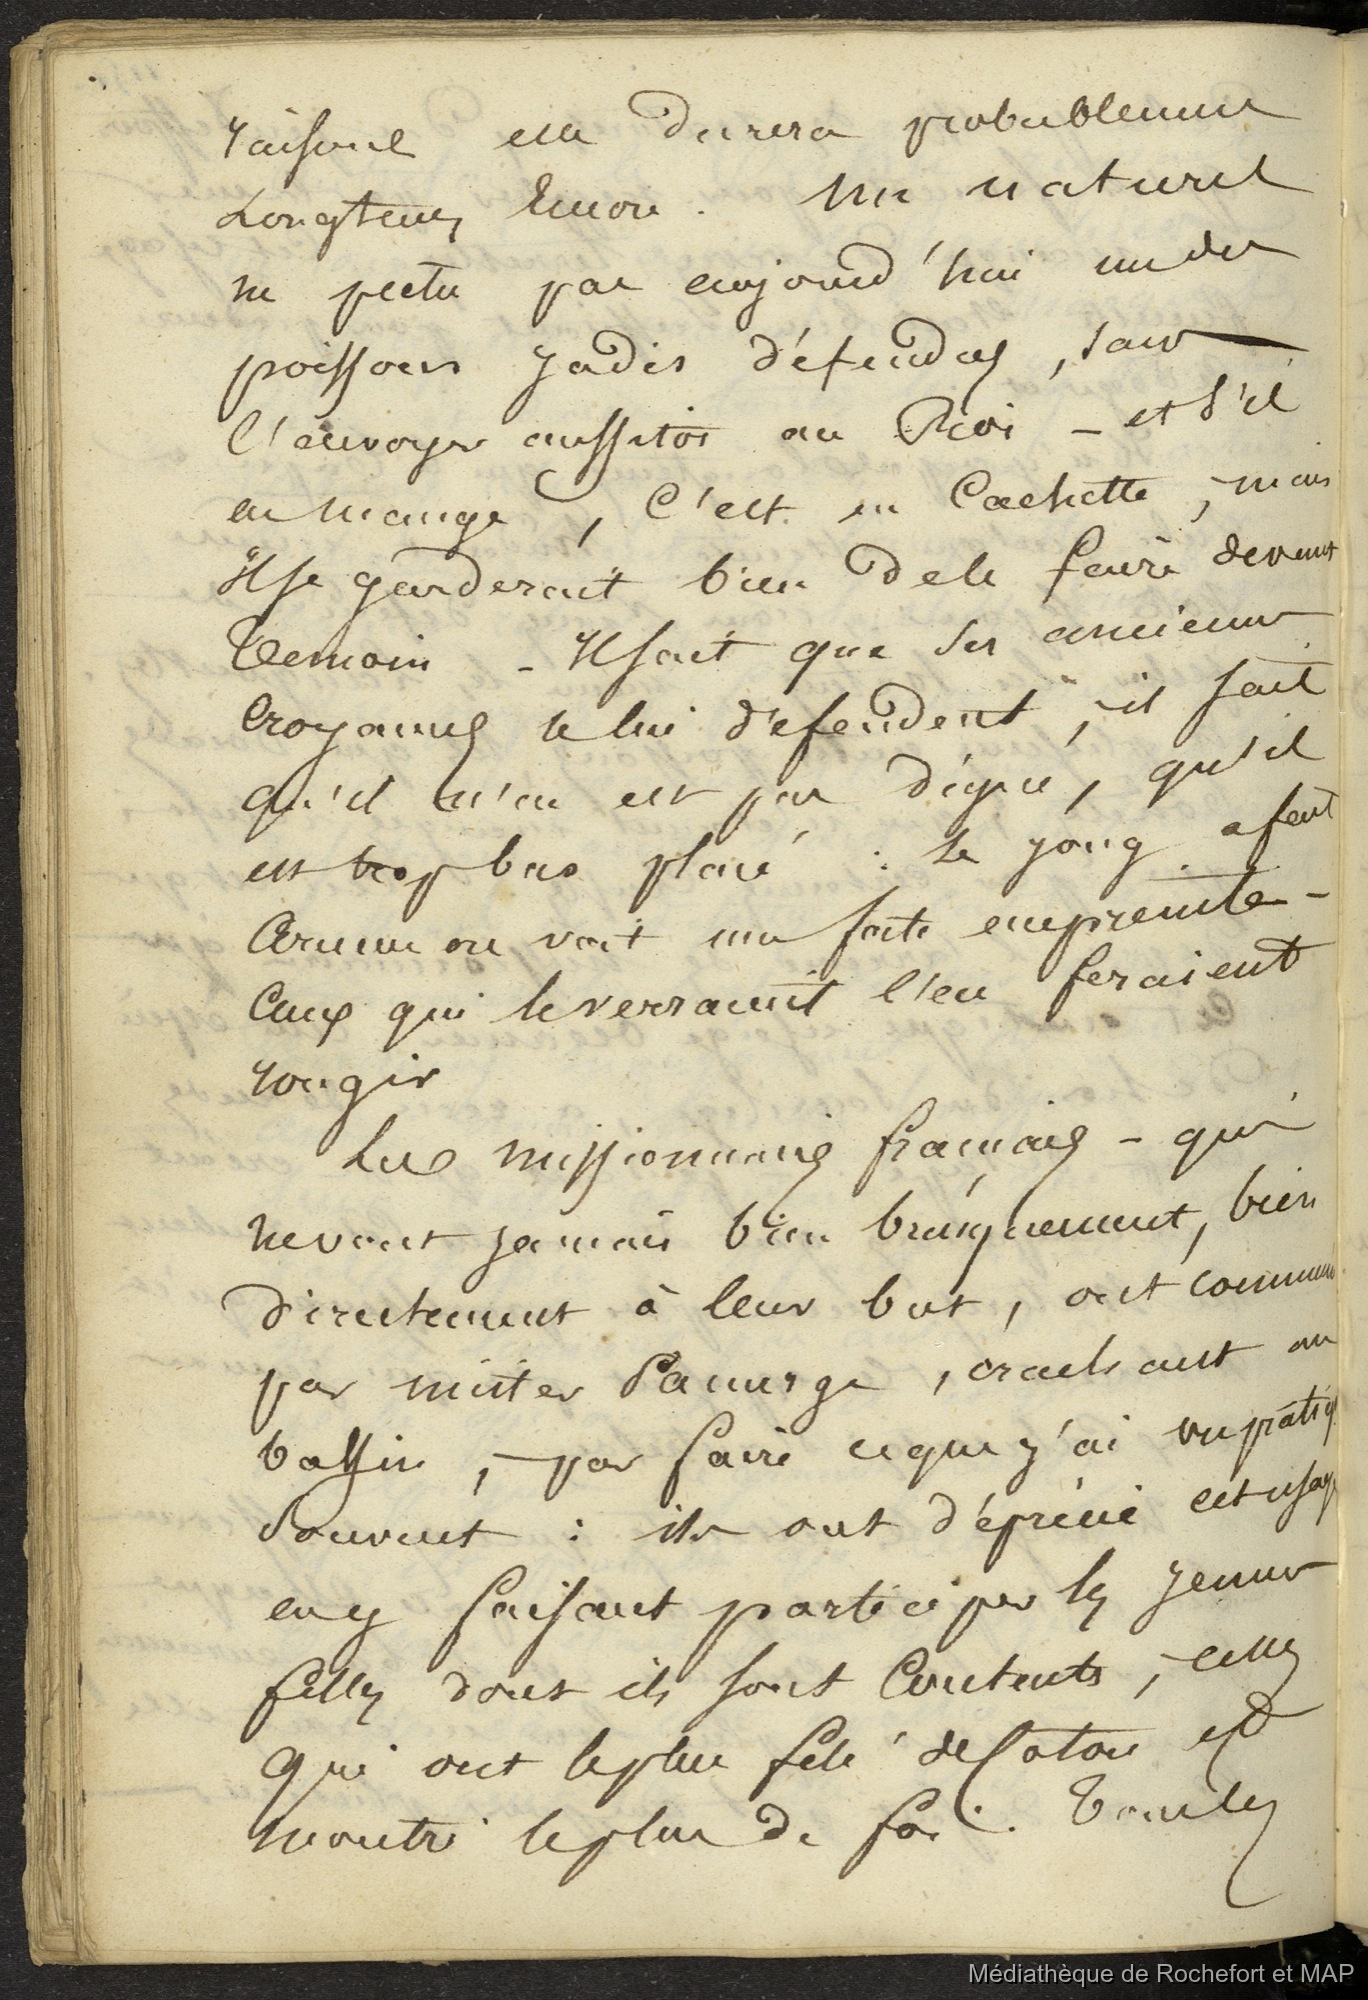 raisons elle durera probablement
Longtems Encore. Un naturel
ne peche pas aujourd'hui un des
poissons jadis défendus, sans
l'envoyer aussitôt au Roi – et s'il
en mange, C'est en Cachette, mais
Il se garderait bien de le faire devant
Temoin – Il sait que ses anciennes
Croyances le lui défendent, il sait
qu'il n'en est pas digne, qu'il
est trop bas placé : le joug a fait
Comme on voit une forte empreinte –
Ceux qui le verraient l'en feraient
rougir
Les missionnaires français – qui
ne vont jamais bien brusquement, bien
directement à leur but, ont commencé
par imiter Panurge, crachant au
bassin, – par faire ce que j'ai vu pratiq
Souvent : ils ont déprécié cet usage
en y faisant participer les jeunes
filles dont ils sont Contents, celles
qui ont le plus filé de Coton et
montré le plus de foi. Toutes
Médiathèque de Rochefort et MAP